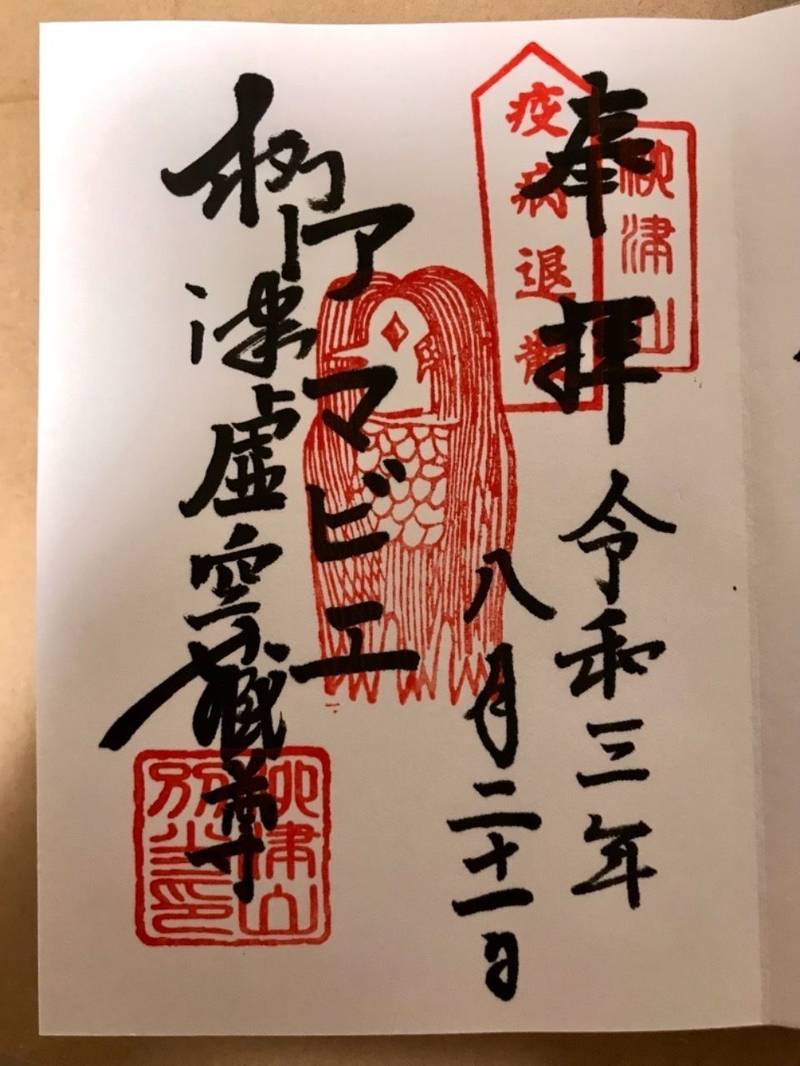 柳津山
疫病退散
奉拝
令和三年
八月二十一日
アマビエ
柳津虚空蔵尊
柳津山
別当印